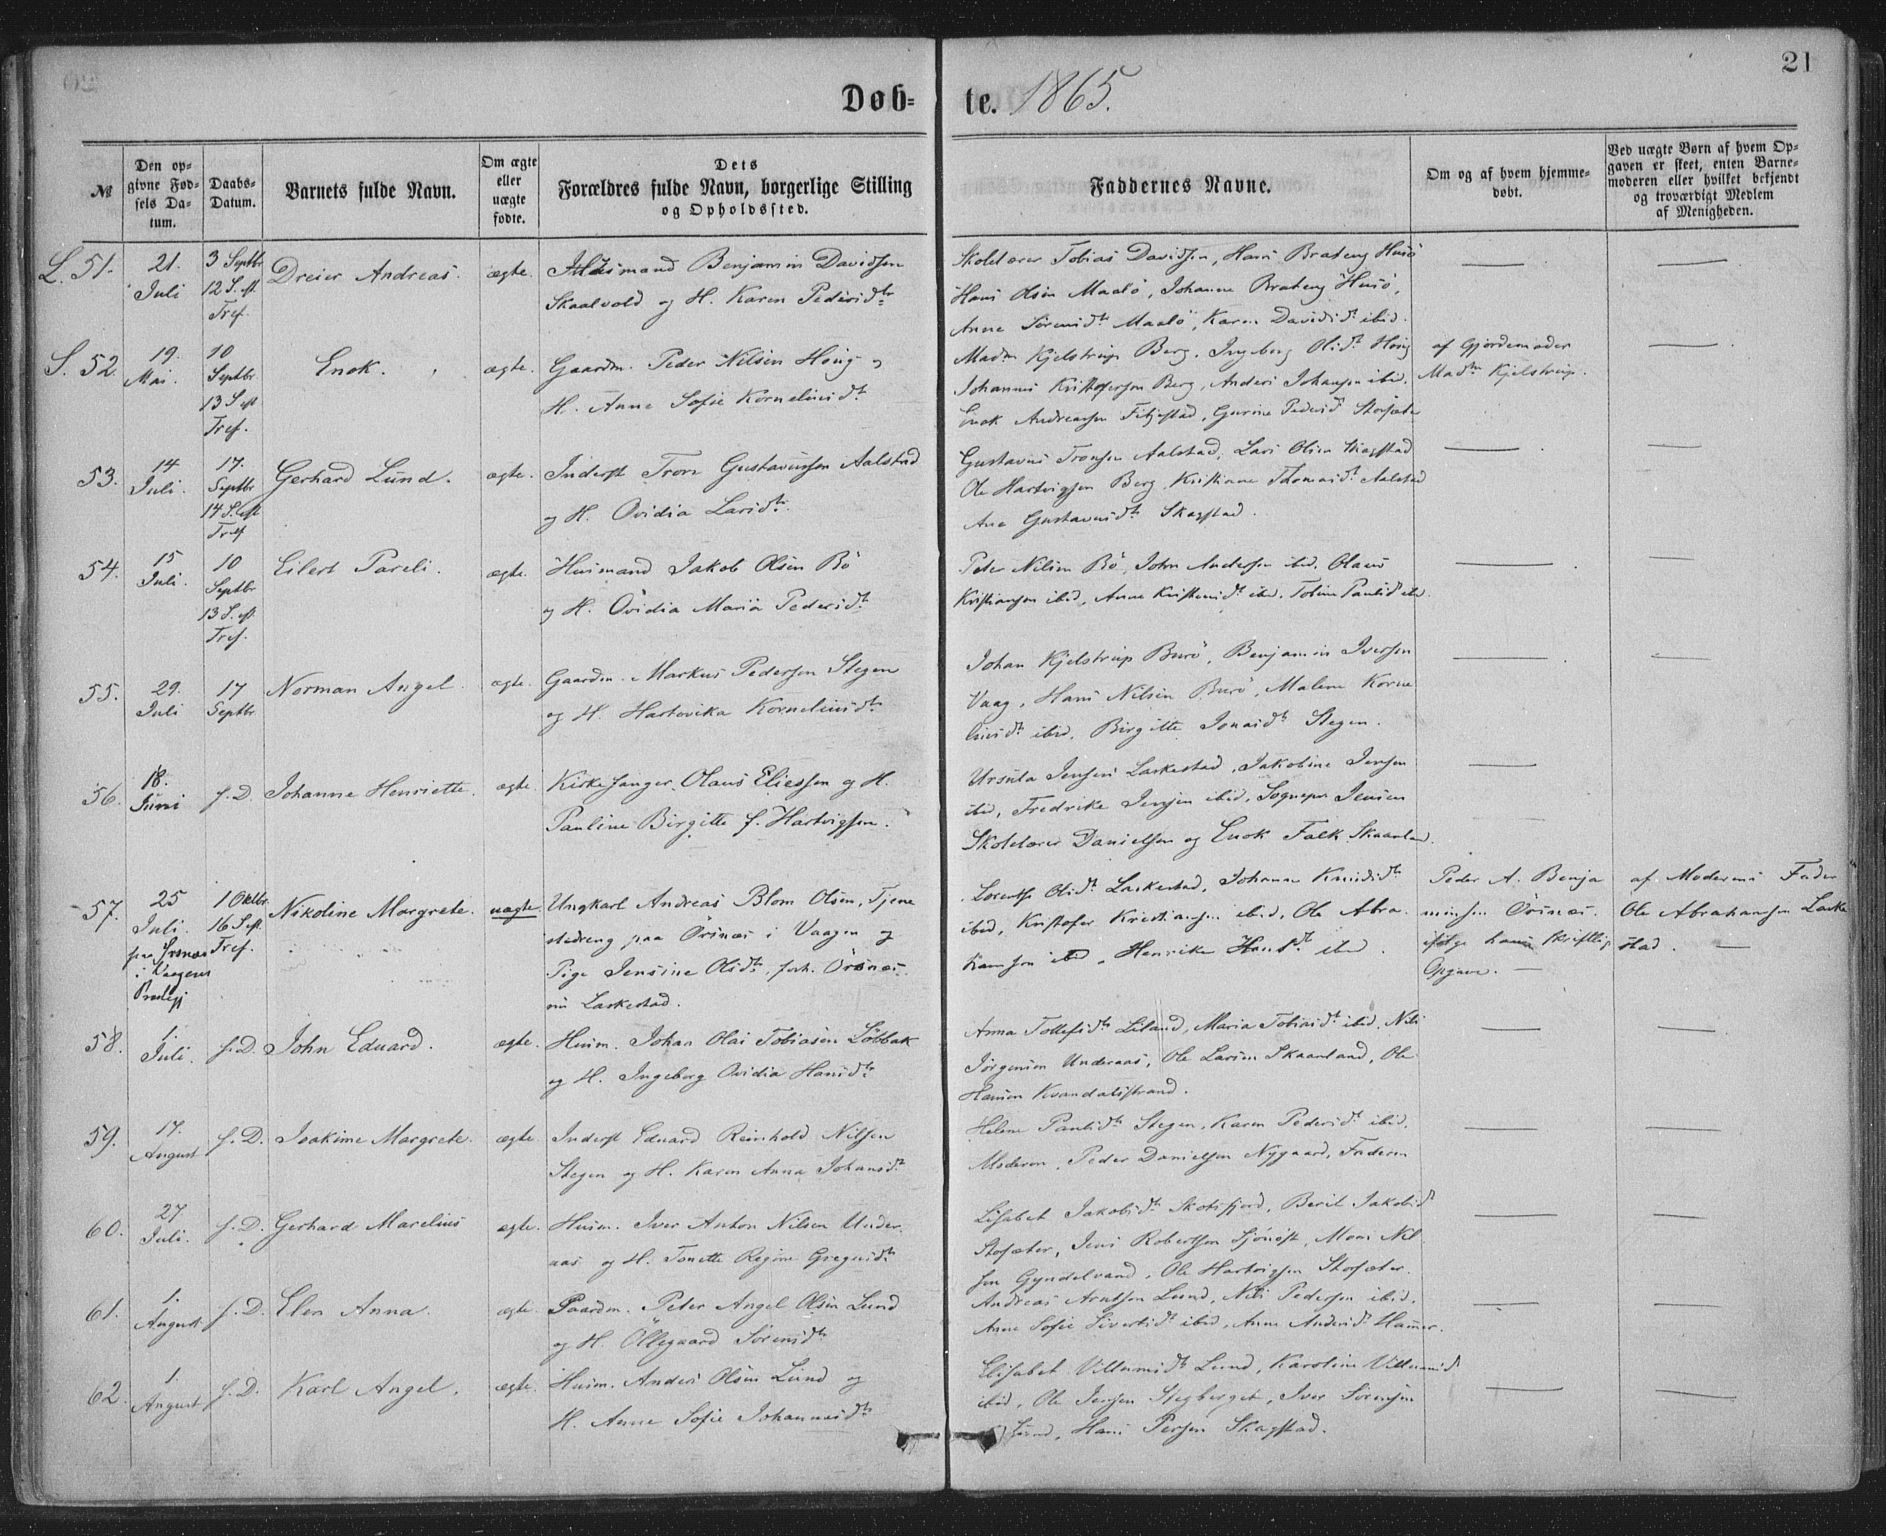 21
Døb-
te. 1865.
№
Den op-
givne Fød-
sels Da-
tum.
Daabs-
Datum.
Barnets fulde Navn.
Om ægte
eller
uægte
fødte.
Dets
Forældres fulde Navn, borgerlige Stilling
og Opholdssted.
Faddernes Navne.
Om og af hvem hjemme-
døbt.
Ved uægte Børn af hvem Op-
gaven er skeet, enten Barne-
moderen eller hvilket bekjendt
og troværdigt Medlem
af Menigheden.
L. 51.
21.
Juli
3 Septbr
12 S. eft.
Tref.
Dreier Andreas.
ægte.
Husmand Benjamin Davidsen
Skaalvold og H. Karen Pedersdtr
Skolelærer Tobias Davidsen, Hans Brateng Husö
Hans Olsen Maalö, Johanna Brateng Husö,
Anne Sörensdtr Maalö, Karen Davidsdtr ibid.
S. 52.
19.
Mai.
10
Septbr
13 S. eft
Tref.
Enok.
ægte.
Gaardm. Peder Nilsen Höug og
H. Anne Sofie Korneliusdtr
Madm Kjelstrup Berg, Ingeborg Olsdtr Höug
Johannes Kristofersen Berg, Anders Johansen ibid.
Enok Andreassen Fikjestad, Gurine Pedersdtr Storsæter
af Gjordemoder
Madm Kjelstrup.
53.
14
Juli.
17.
Septbr
14 S. eft
Tref
Gerhard Lund.
ægte.
Inderst Tron Gustavussen Aalstad
og H. Ovidia Larsdtr
Gustavus Tronsen Aalstad, Lars Olsen Skagstad
Ole Hartvigsen Berg, Kristiane Thomasdtr Aalstad
Ane Gustavusdtr Skagstad.
54.
15
Juli.
10
Septbr
13 S. eft.
Tref.
Eilert Pareli.
ægte.
Husmand Jakob Olsen Bö
og H. Ovidia Maria Pedersdtr
Peter Nilsen Bö, John Andersen ibid. Olaus
Kristiansen ibid, Anne Kristensdtr ibid. Tobine Paulsdtr ibid.
55.
29.
Juli
17
Septbr
Norman Angel.
ægte.
Gaardm. Markus Pedersen Stegen
og H. Hartvika Korneliusdtr
Johan Kjelstrup Burö, Benjamin Iversen
Vaag, Hans Nilsen Burö, Malene Korne
liusdtr ibid. Birgitte Jonasdtr Stegen.
56.
18.
Juni
s. D.
Johanne Henriette.
ægte.
Kirkesanger Olaus Eliessen og H.
Pauline Birgitte f. Hartvigsen.
Ursula Jensen Laskestad, Jakobine Jensen
ibid, Fredrike Jensen ibid, Sognepr Jensen
Skolelærer Danielsen og Enok Falk Skaanland.
57.
25
Juli.
paa Örsnæs
i Vaagens
Prestegj
1 Oktbr.
16 S. eft.
Tref.
Nikoline Margrete.
uægte
Ungkarl Andreas Blom Olsen, Tjene
stedreng paa Örsnæs i Vaagen og
Pige Jensine Olsdtr, forh. Örsnæs
nu Laskestad.
Lorentse Olsdtr Laskestad, Johanne Knudsdtr
ibid, Kristofer Kristiansen ibid, Ole Abra
hamsen ibid, Henrike Hansdtr ibid.
Peder A. Benja
minsen Örsnæs.
ifølge hans skriftlig
Opgave. —
af Moderens Fader
Ole Abrahamsen Laske
stad. —
58.
1.
Juli.
s. D.
John Eduard.
ægte.
Husm. Johan Olai Tobiasen Löbbak
og H. Ingeborg Ovidia Hansdtr
Anna Tollefsdtr Leland, Maria Tobiasdtr ibid, Nils
Jörgensen Underaas, Ole Larsen Skaanland, Ole
Hansen Kvandalstrand.
59.
17.
August
s. D.
Joakime Margrete.
ægte.
Inderst Eduard Reinhold Nilsen
Stegen og H. Karen Anna Johansdtr
Helene Paulsdtr Stegen, Karen Pedersdtr ibid.
Moderen, Peder Danielsen Nygaard, Faderen
60.
27
Juli.
s. D.
Gerhard Marelius
ægte.
Husm. Iver Anton Nilsen Under
aas og H. Tonette Regine Gregusdtr
Lisabet Jakobsdtr Skotsfjord, Beril Jakobsd
Storsæter, Jens Robertsen Sjönöst, Mons Nil
sen Gyndelvand, Ole Hartvigsen Storsæter.
61.
1.
August
s. D.
Elen Anna.
ægte.
Gaardm. Peter Angel Olsen Lund
og H. Öllegaard Sörensdtr
Andreas Arntsen Lund, Nils Pedersen ibid.
Anne Sofie Sivertsdtr ibid, Anne Andersdtr Hamer.
62.
1.
August
s. D.
Karl Angel.
ægte.
Husm. Anders Olsen Lund og
H. Anne Sofie Johannesdtr
Elisabet Villumsdtr Lund, Karoline Villumsd
ibid, Ole Jensen Stegberget, Iver Sörensen
Lund, Hans Persen Skagstad.